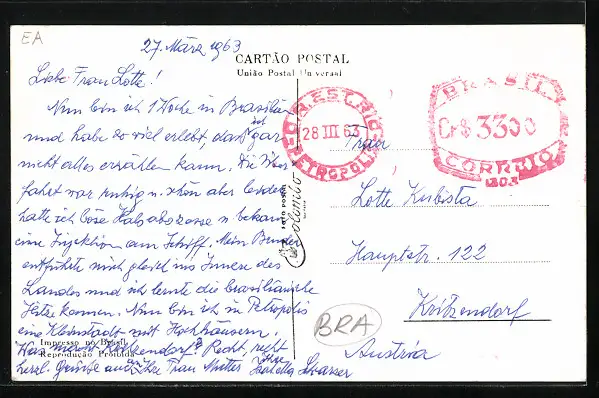 EA
27. März 1963
CARTÃO POSTAL
União Postal Universal
Liebe Frau Lotte!
Nun bin ich 1 Woche in Brasilien
und habe so viel erlebt, daß ich gar
nicht alles erzählen kann. Die Über
fahrt war ruhig u. schön aber leider
hatte ich böse Halsabszesse u. bekam
eine Injektion am Schiff. Mein Bruder
entführte mich gleich ins Innere des
Landes und ich lernte die brasilianische
Hitze kennen. Nun bin ich in Petropolis
eine Kleinstadt mit Hochhäusern.
Was macht Kritzendorf? Recht, recht
herzl. Grüße auch Ihrer Frau Mutter Ihre
Impresso no Brasil
Reprodução Proibida
28 III 63
PETROPOLIS
BRASIL
Cr$ 3300
CORREIO
Frau
Lotte Kubista
Hauptstr. 122
Kritzendorf
Austria
BRA